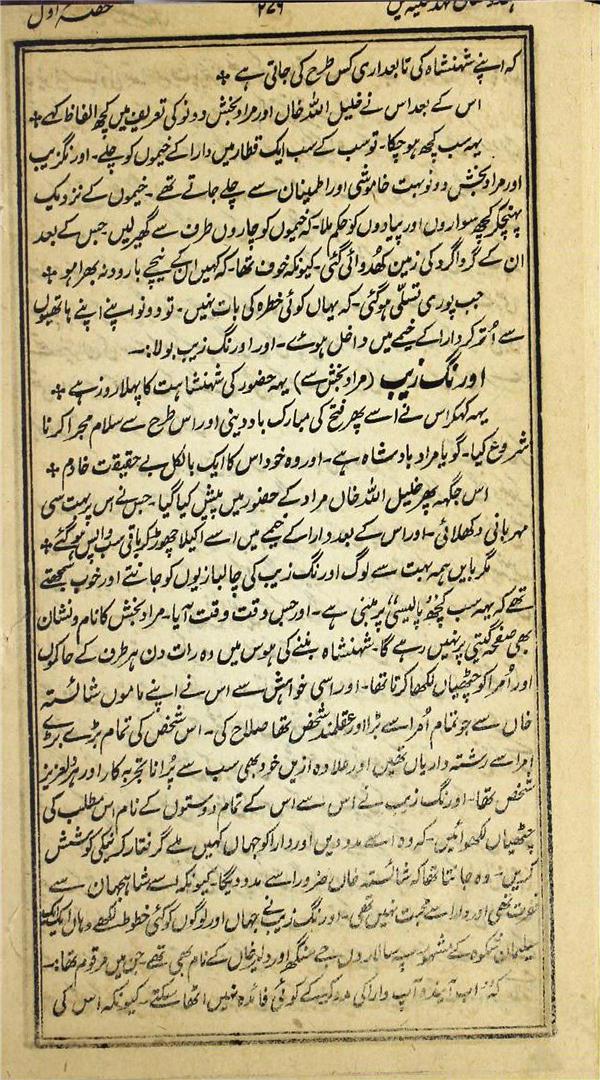 حصہ اول ۲۷۶
کہ اپنے شہنشاہ کی تابعداری کس طرح کی جاتی ہے ✣
اس کے بعد اس نے خلیل اللہ خاں اور مراد بخش دونو کی تعریف میں کچھ الفاظ کہے ✣
یہہ سب کچھ ہوچکا۔ تو سب کے سب ایک قطار میں دارا کے خیموں کو چلے۔ اورنگزیب
اور مراد بخش دونو بہت خاموشی اور اطمینان سے چلے جاتے تھے۔ خیموں کے نزدیک
پہنچکر کچھ سواروں اور پیادوں کو حکم ملا۔ کہ خیموں کو چاروں طرف سے گھیر لیں جس کے بعد
ان کے گرداگرد کی زمین کھدوائی گئی۔ کیونکہ خوف تھا۔ کہ کہیں ان کے نیچے بارود نہ بھرا ہو ✣
جب پوری تسلی ہوگئی۔ کہ یہاں کوئی خطرہ کی بات نہیں۔ تو دونو اپنے اپنے ہاتھیوں
سے اُتر کر دارا کے خیمے میں داخل ہوئے۔ اور اورنگ زیب بولا:۔
اورنگ زیب (مراد بخش سے) یہہ حضور کی شہنشاہت کا پہلا روز ہے ✣
یہہ کہکر اس نے اسے پھر فتح کی مبارک باد دینی اور اس طرح سے سلام مجرا کرنا
شروع کیا۔ گویا مراد بادشاہ ہے۔ اور وہ خود اس کا ایک بالکل بے حقیقت خادم ✣
اس جگہہ پھر خلیل اللہ خاں مراد کے حضور میں پیش کیا گیا۔ جس نے اس پر بہت سی
مہربانی دکھلائی۔ اور اس کے بعد دارا کے خیمے میں اسے اکیلا چھوڑ کر باقی سب واپس ہوگئے ✣
مگر بایں ہمہ بہت سے لوگ اورنگ زیب کی چالبازیوں کو جانتے اور خوب سمجھتے
تھے کہ یہہ سب کچھ "پالیسی" پر مبنی ہے۔ اور جس وقت وقت آیا۔ مراد بخش کا نام و نشان
بھی صفحہ گیتی پر نہیں رہے گا۔ شہنشاہ بننے کی ہوس میں وہ رات دن ہر طرف کے حاکموں
اور اُمرا کو چٹھیاں لکھا کرتا تھا۔ اور اسی خواہش سے اس نے اپنے ماموں شائستہ
خاں سے جو تمام اُمرا سے بڑا اور عقلمند شخص تھا صلاح کی۔ اس شخص کی تمام بڑے بڑے
امرا سے رشتہ داریاں تھیں اور علاوہ ازیں خود بھی سب سے پُرانا تجربہ کار اور ہر دلعزیز
شخص تھا۔ اورنگ زیب نے اس سے اس کے تمام دوستوں کے نام اس مطلب کی
چٹھیاں لکھوائیں۔ کہ وہ اسے مدد دیں اور دارا کو جہاں کہیں ملے گرفتار کرنیکی کوشش
کریں۔ وہ جانتا تھا کہ شائستہ خاں ضرور اسے مدد دیگا۔ کیونکہ اسے شاہجہان سے
نفرت تھی اور دارا سے محبت نہیں تھی۔ اورنگ زیب نے جہاں اور لوگوں کو کئی خطوط لکھے وہاں ایک ایک
سلیمان شکوہ کے مشہور سپہ سالاروں جے سنگھ اور دلیر خاں کے نام بھی تھے۔ جن میں مرقوم تھا:۔
کہ "اب آیندہ آپ دارا کی مدد کرکے کوئی فائدہ نہیں اٹھا سکتے۔ کیونکہ اس کی